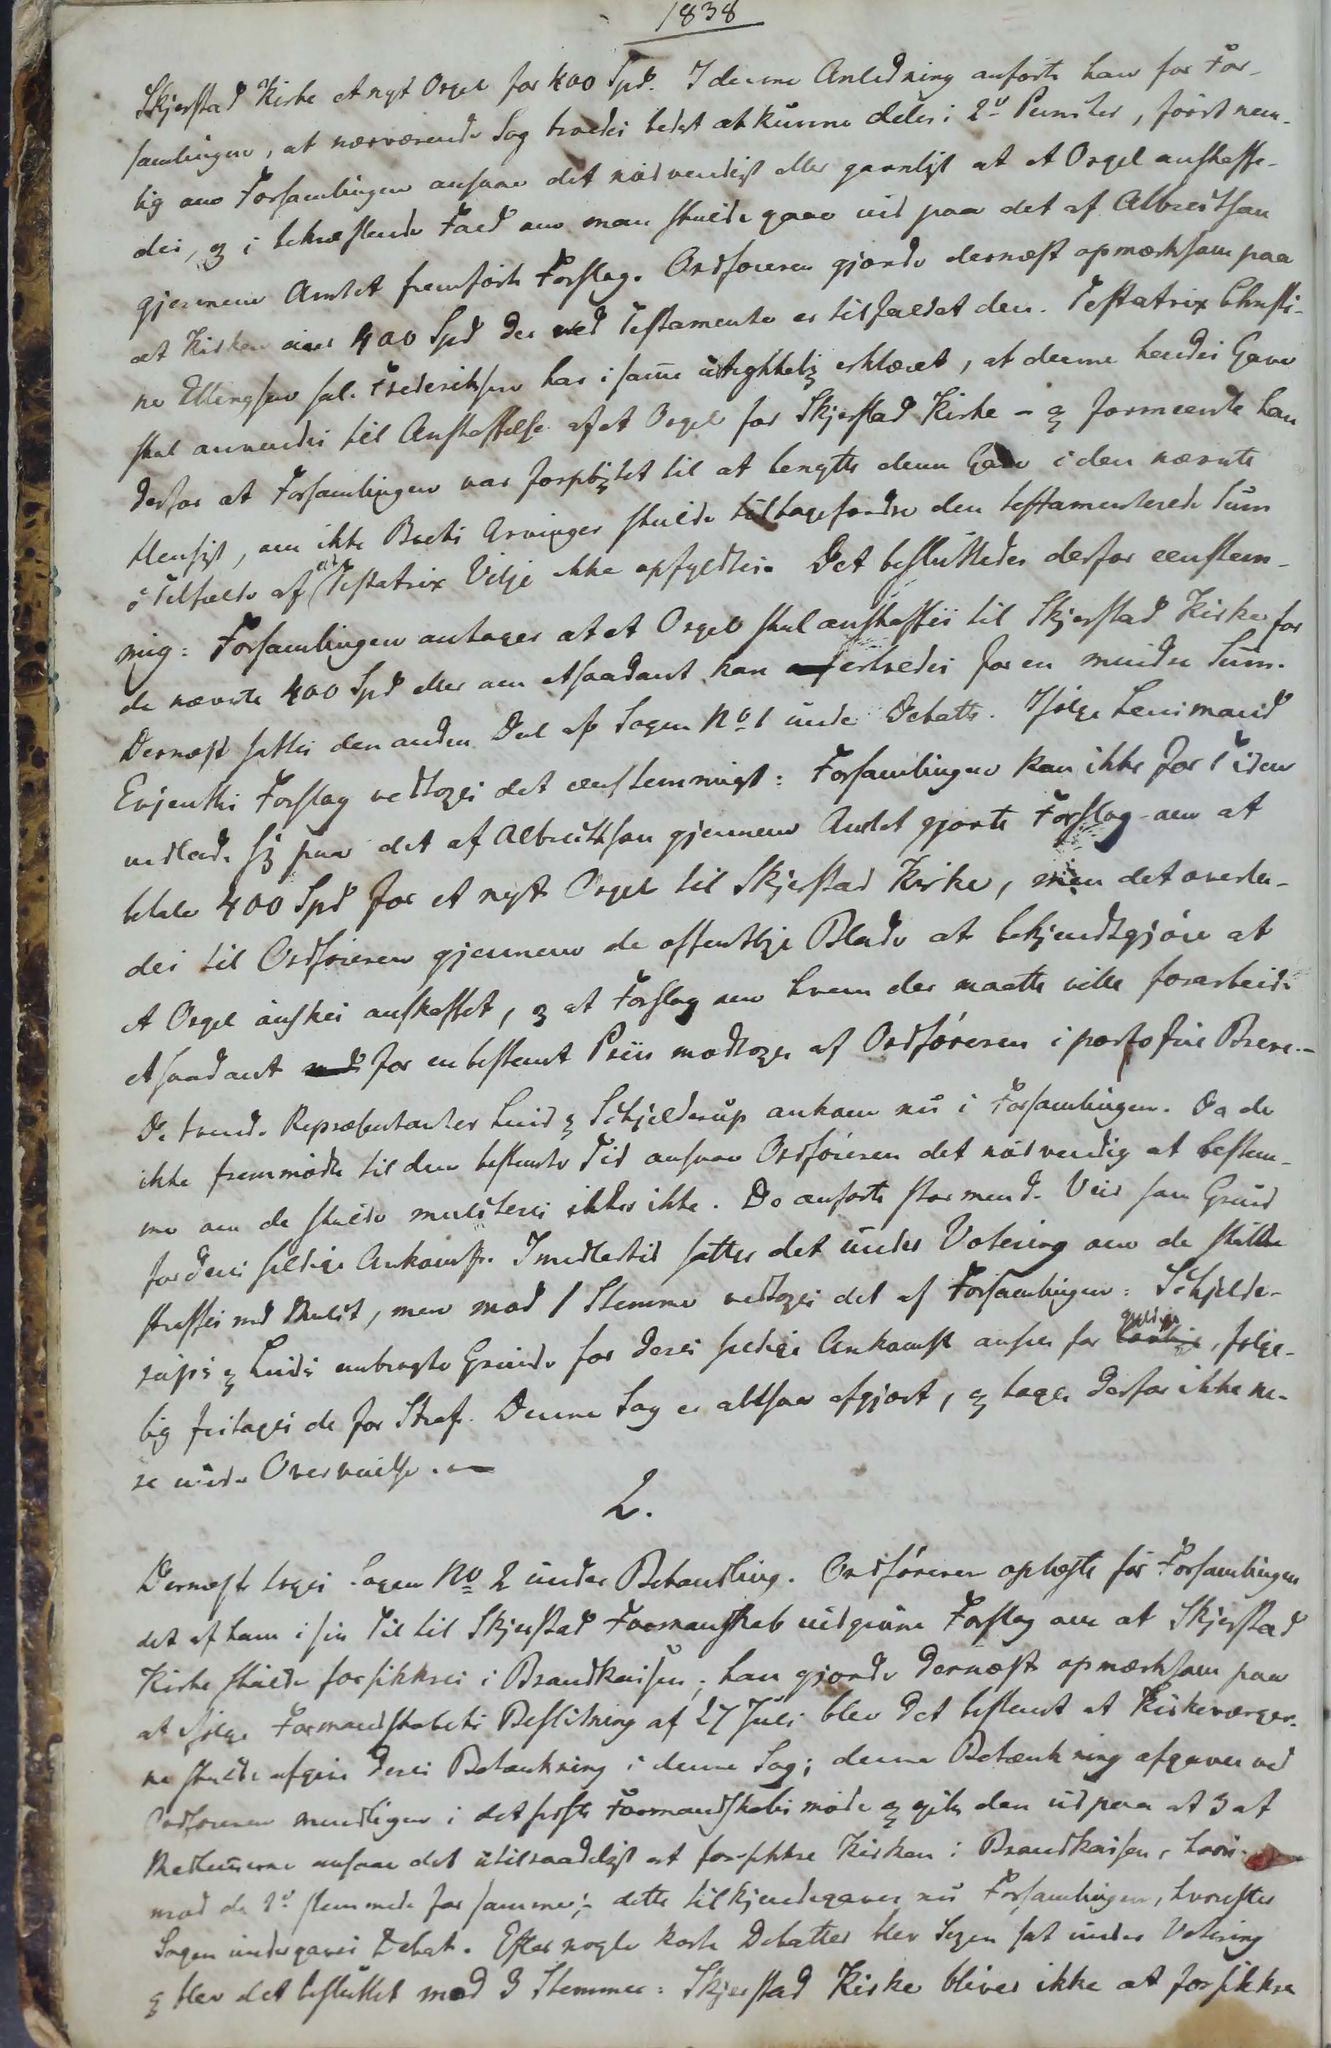 1838
Skjerstad Kirke et nyt Orgel for 400 Spd. I denne Anledning anførte han for For-
samlingen, at nærværende Sag troedes bedst at kunne deles i 2de Puncter, først nem-
lig om Forsamlingen ansaae det nødvendigt eller gavnligt at et Orgel anskaffe-
des, og i bekræftende Fald om man skulde gaae ind paa det af Albrectsen
gjennem Amtet fremførte Forslag. Ordføreren gjorde dernæst opmærksom paa
at Kirken eier 400 Spd der ved Testamente er tilfaldet den. Testatrix Christi-
ne Ellingsen sal. Frederiksen har i samme udtrykkelig erklæret, at denne hendes Gave
skal anvendes til Anskaffelse af et Orgel for Skjerstad Kirke – og formeente han
derfor at Forsamlingen var forpligtet til at benytte denne Gave i den nævnte
Hensigt, om ikke Boets Arvinger skulde tilbagefordre den testamenterede Sum
i Tilfælde af at Testatrix Vilje ikke opfyldtes. Det besluttedes derfor eenstem-
mig: Forsamlingen antager at et Orgel skal anskaffes til Skjerstad Kirke for
de nævnte 400 Spd eller om etsaadant kan erholdes for en mindre Sum.
Dernæst sattes den anden Deel af Sagen No 1 under Debatte. Ifølge Lensmand
Evjenths Forslag vedtoges det eenstemmigt: Forsamlingen kan ikke for Tiden
indlade sig paa det af Albrectsen gjennem Amtet gjorte Forslag om at
betale 400 Spd for et nyt Orgel til Skjerstad Kirke, men det overla-
des til Ordføreren gjennem de offentlige Blade at bekjendtgjøre at
et Orgel ønskes anskaffet, og at Forslag om hvem der maatte ville forarbeide
etsaadant for en bestemt Priis modtages af Ordføreren i portofrie Breve.–
De tvende Repræsentanter Lund og Schjelderup ankom nu i Forsamlingen. Da de
ikke fremmødte til den bestemte Tid ansaae Ordføreren det nødvendig at bestem-
me om de skulde mulcteres eller ikke. De anførte stormende Veir som Grund
for deres sildige Ankomst. Imidlertid sattes det under Votering om de skulde
straffes med Mulct, men mod 1 Stemme vedtoges det af Forsamlingen: Schjelde-
rups og Lunds anbragte Grunde for deres sildige Ankomst ansees for gyldige, følge-
lig fritages de for Straf. Denne Sag er altsaa afgjort, og tages derfor ikke me-
re under Overveielse. –
2.
Dernæst toges Sagen No 2 under Behandling. Ordføreren oplæste for Forsamlingen
det af ham i sin Tid til Skjerstad Formandskab indgivne Forslag om at Skjerstad
Kirke skulde forsikkres i Brandkassen; han gjorde dernæst opmærksom paa
at ifølge Formandskabets Beslutning af 27 Juli blev det bestemt at Kirkeværger-
ne skulde afgive deres Betænkning i denne Sag; denne Betænkning afgaves ved
Ordføreren mundtligen i det sidste Formandskabsmøde og gik den ud paa at 3 af
Medlemmerne ansaae det utilraadeligt at forsikkre Kirken i Brandkassen, hvori-
mod de 2de stemmede for samme; – dette tilkjendegaves nu Forsamlingen, hvorefter
Sagen undergaves Debat. Efter nogle korte Debatter blev Sagen sat under Votering
og blev det besluttet mod 3 Stemmer: Skjerstad Kirke bliver ikke at forsikkre